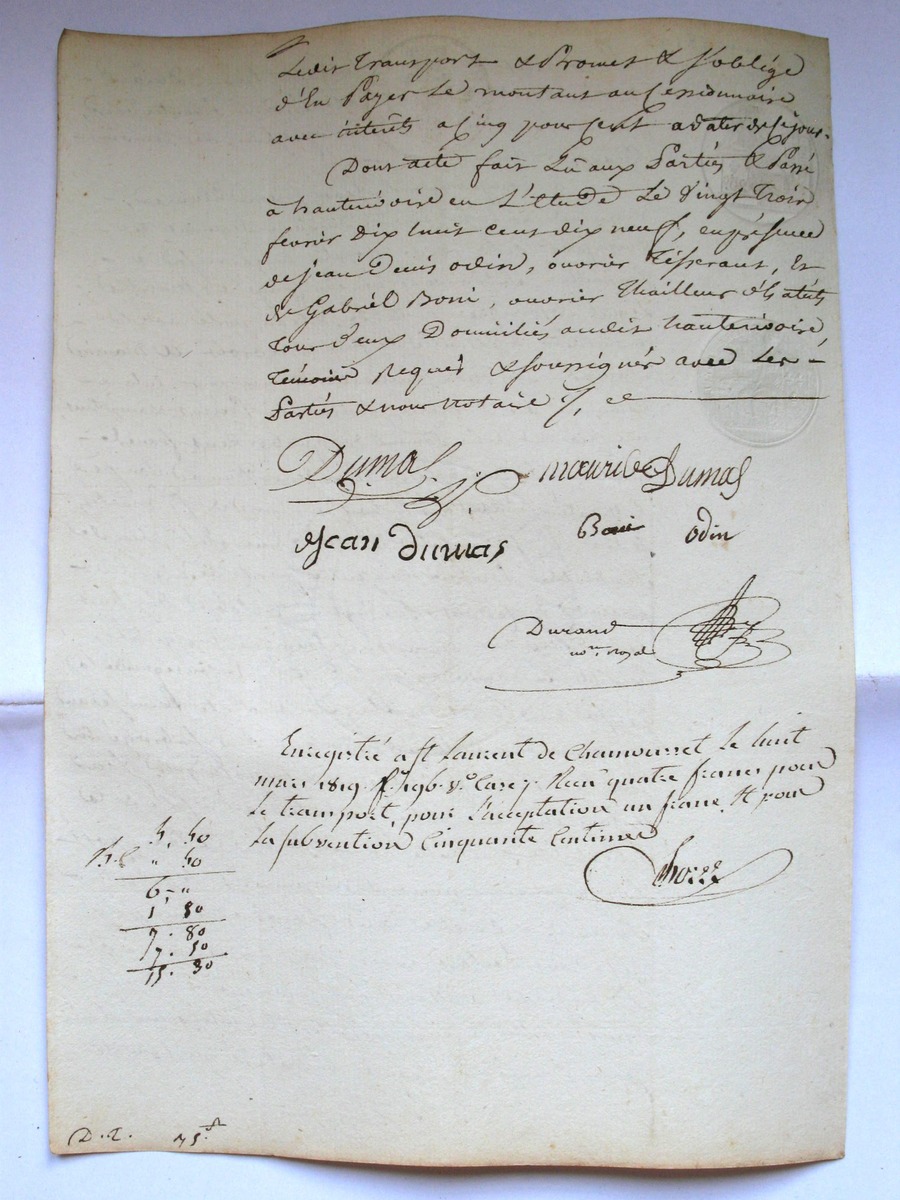 Ledit Transport & Promet & s'oblige
d'En Payer Le montant au Cessionnaire
avec interêts a Cinq pour Cent a dater de ce jour.
Dont acte fait Lu aux Parties & Passé
à hauterivoire en L'Etude Le vingt Trois
fevrier dix huit cent dix neuf, en présence
de jean Denis odin, ouvrier Tisserant, Et
de Gabriël Boni, ouvrier Thailleur d'habits
Tous deux Domiciliés audit hauterivoire
Témoins Requis & soussignés avec Les
Parties & nous notaire
Dumas maurice Dumas
Jean Dumas Boni odin
Durand
nore. royal
Enregistré a St Laurent de Chamousset Le huit
mars 1819 fo. 196 Vo. Case 7 Recu quatre francs pour
Le transport, pour L'acceptation un franc, Et pour
La subvention Cinquante Centimes
5. 50
" 50
6. "
1. 80
7. 80
7. 50
15. 30
D. T. 75.